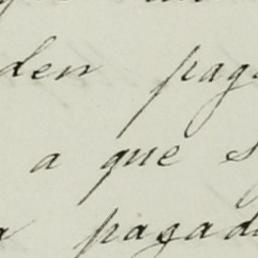 den pag
a que s
a pagad